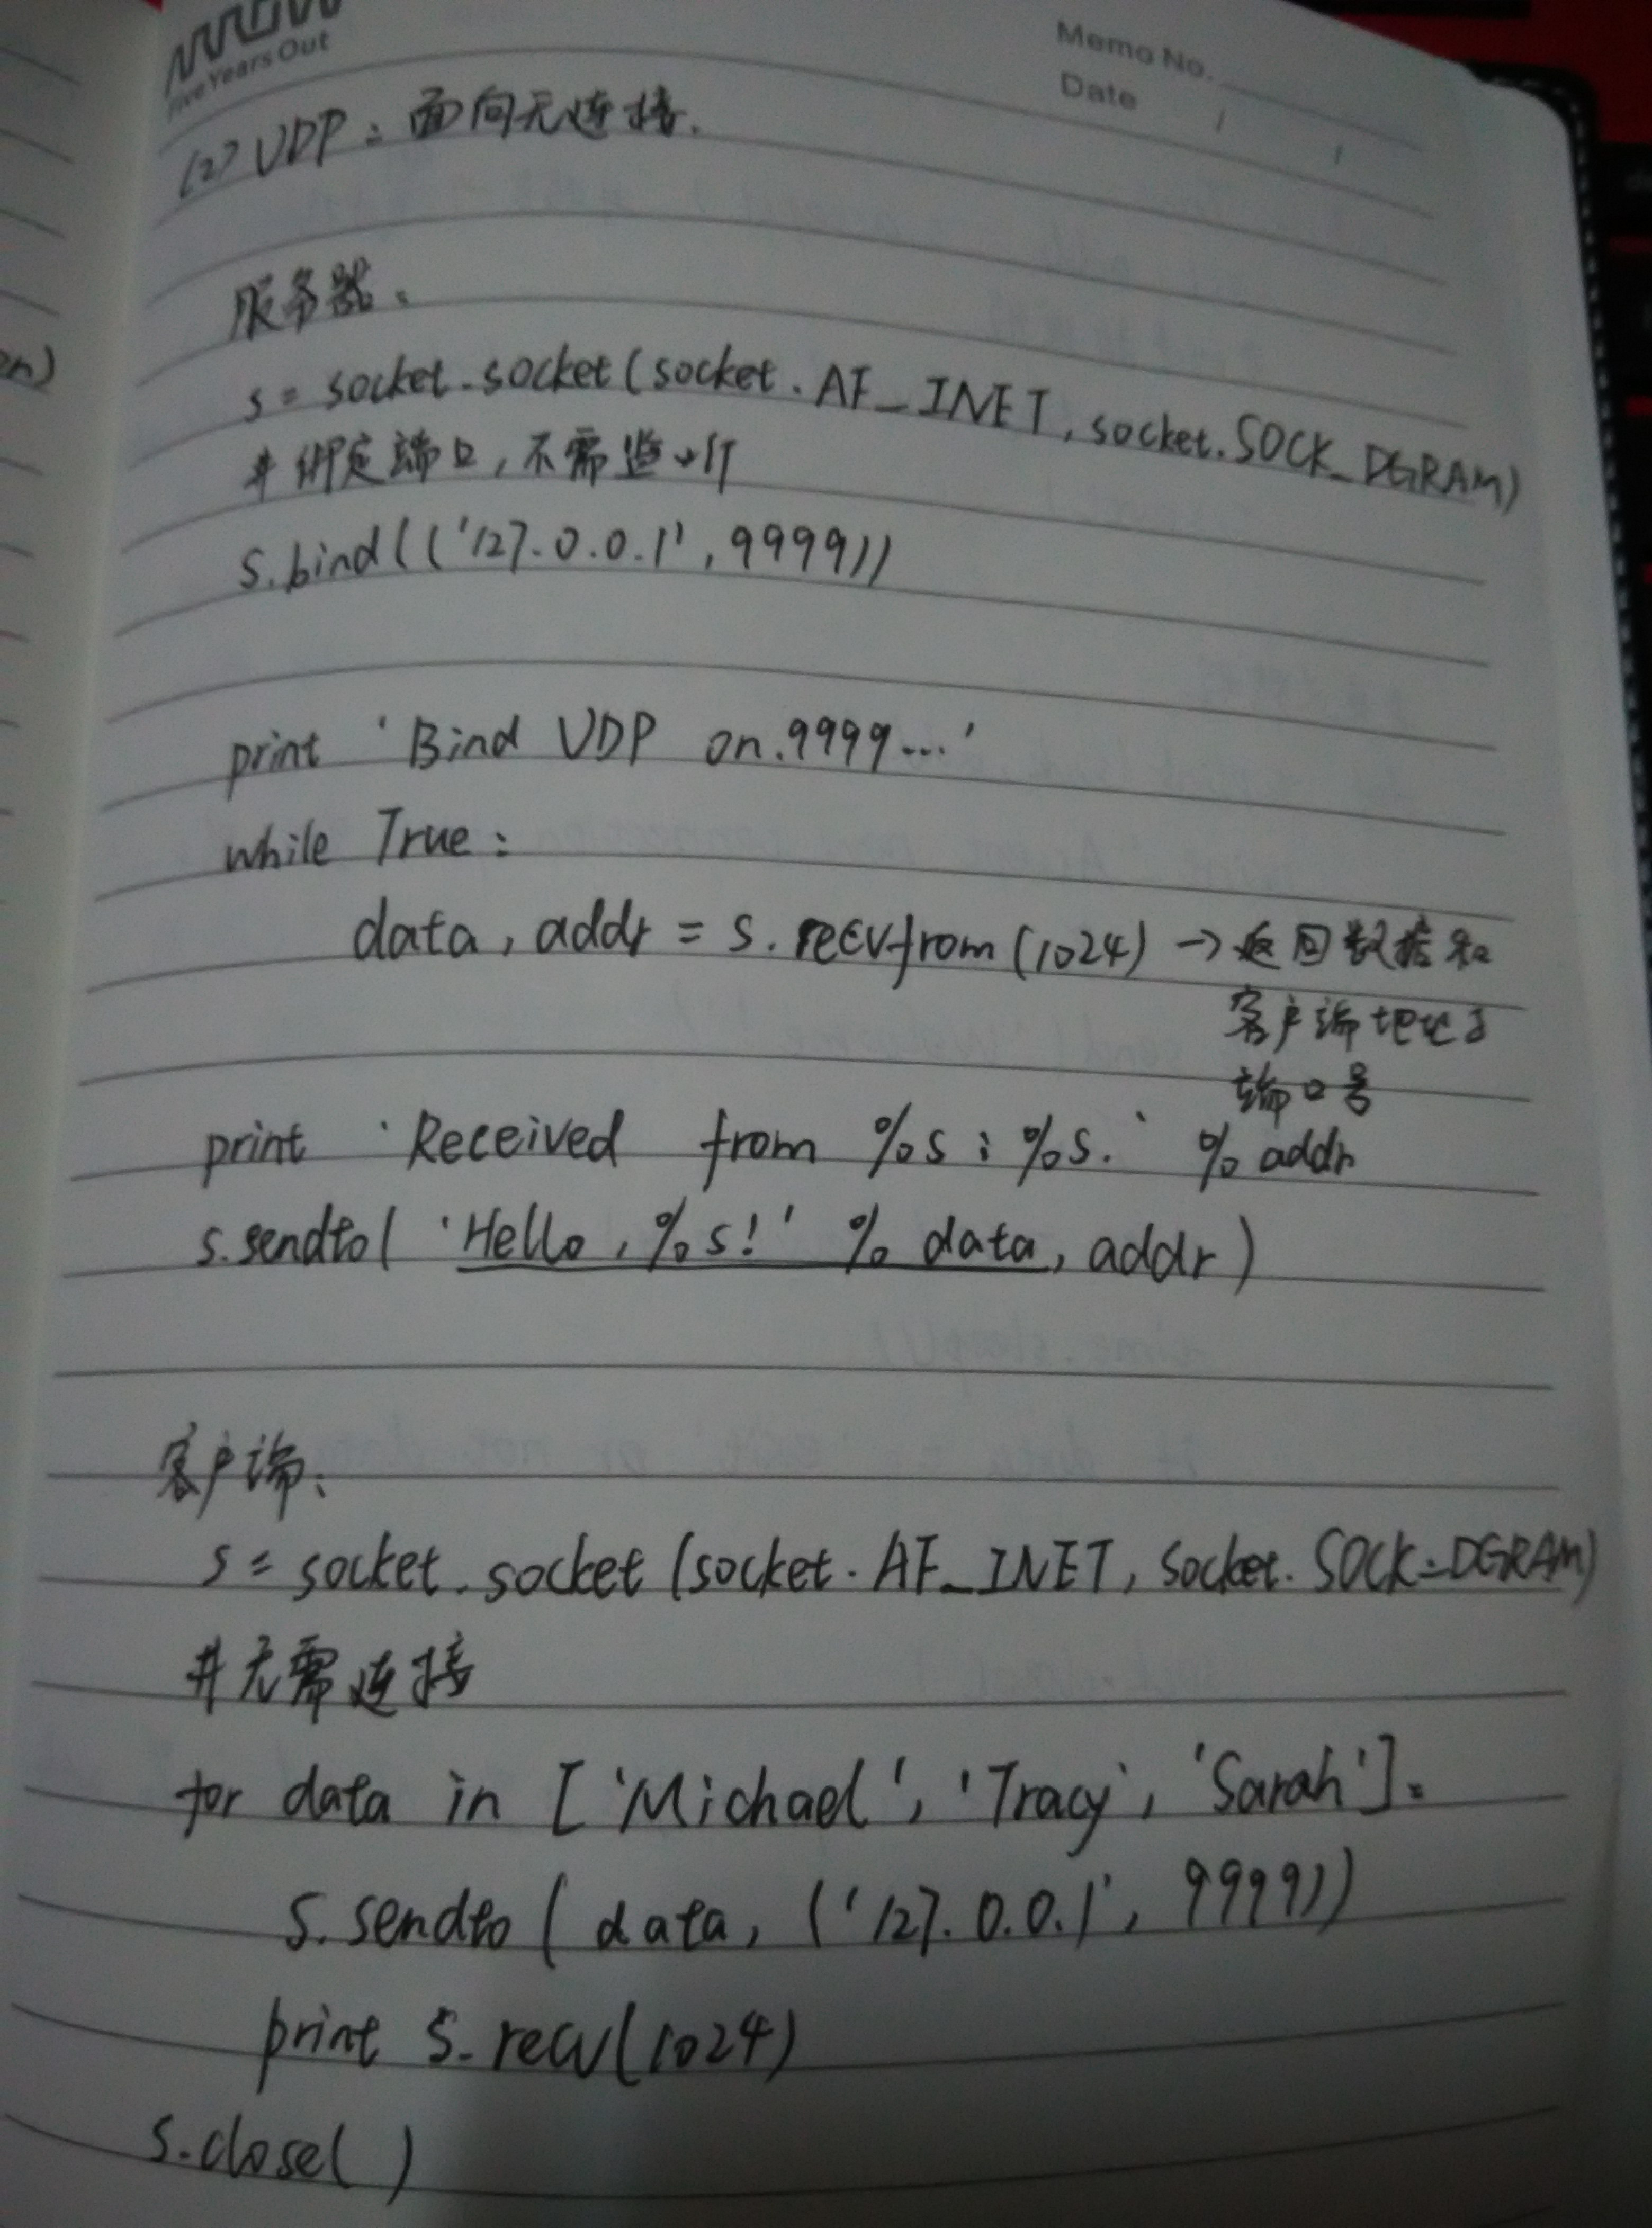 ARROW
Five Years Out
Memo No.
Date / /
(2) UDP：面向无连接.
服务器：
s = socket.socket(socket.AF_INET, socket.SOCK_DGRAM)
# 绑定端口，不需监听
s.bind(('127.0.0.1', 9999))
print 'Bind UDP on 9999...'
while True:
data, addr = s.recvfrom(1024) → 返回数据和
客户端地址与
端口号
print 'Received from %s:%s.' % addr
s.sendto('Hello, %s!' % data, addr)
客户端：
s = socket.socket(socket.AF_INET, socket.SOCK_DGRAM)
# 无需连接
for data in ['Michael', 'Tracy', 'Sarah']:
s.sendto(data, ('127.0.0.1', 9999))
print s.recv(1024)
s.close()